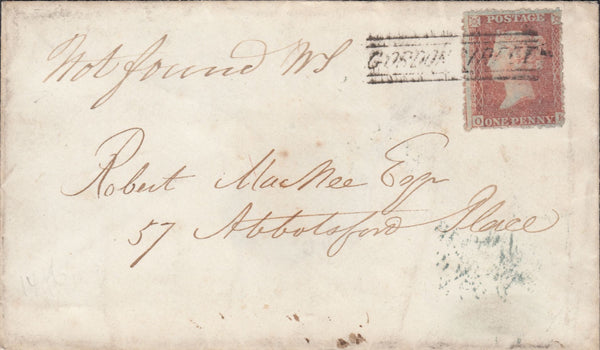 Not found WS
GORDON STREET
POSTAGE
ONE PENNY
Robert MacNee Esqr
57 Abbotsford Place